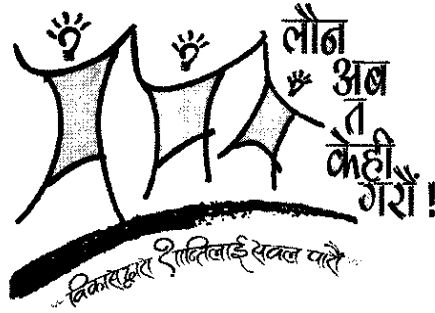 लौन
अब
त
केही
गरौं !
विकासद्वारा शान्तिलाई सबल पारौं